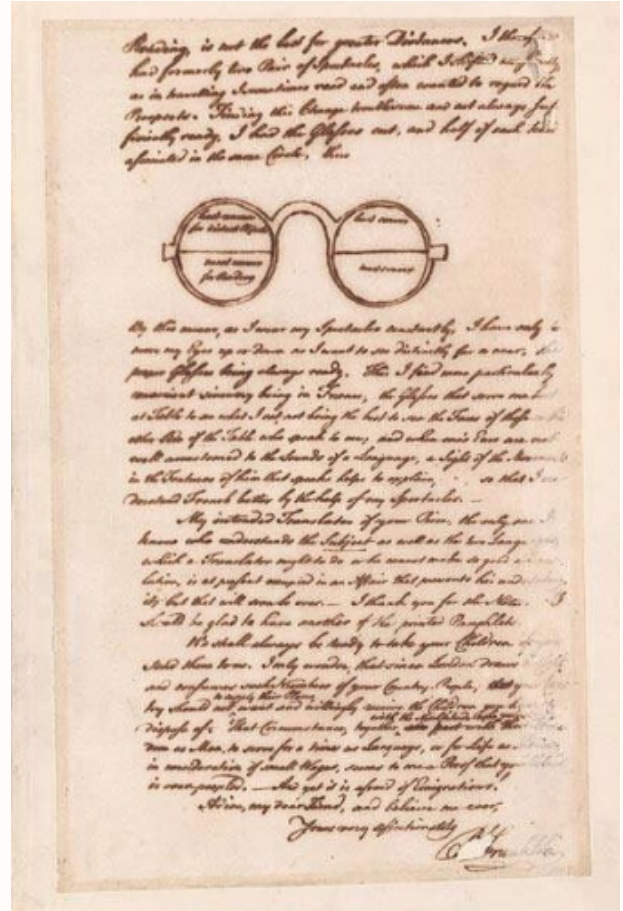 Reading, is not the best for greater Distances. I therefore
had formerly two Pair of Spectacles, which I shifted occasionally,
as in travelling I sometimes read and often wanted to regard the
Prospects. Finding this Change troublesome and not always suf
ficiently ready, I had the Glasses cut, and half of each kind
associated in the same Circle, thus
least convex
for distant Objects
least convex
most convex
for Reading
most convex
By this means, as I wear my Spectacles constantly, I have only to
move my Eyes up or down as I want to see distinctly far or near, the
proper Glasses being always ready. This I find more particularly
convenient since my being in France, the Glasses that serve me best
at Table to see what I eat, not being the best to see the Faces of those on the
other Side of the Table who speak to me; and when one's Ears are not
well accustomed to the Sounds of a Language, a Sight of the Movements
in the Features of him that speaks helps to explain, so that I un
derstand French better by the help of my Spectacles. —
My intended Translator of your Piece, the only one I
know who understands the Subject as well as the two Languages,
which a Translator ought to do or he cannot make so good a Trans
lation, is at present occupied in an Affair that prevents his undertaking
it; but that will soon be over. — I thank you for the Notes.
I should be glad to have another of the printed Pamphlets.
We shall always be ready to take your Children if you
send them to us. I only wonder, that since London draws to itself
and consumes such Numbers of your Country People, that your
should not want and willingly receive the Children you have to
to supply their Places
dispose of. That Circumstance, together
with the Multitude
as Man, to serve for a time as or for Life as
in consideration of small Wages, seems to me a Proof that your Island
is over-peopled. — And yet it is afraid of Emigrations.
Adieu, my dear Friend, and believe me ever,
Yours very affectionately
B Franklin